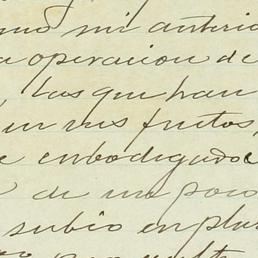 mi anterio
a operacion de
las que han
en sus frutos,
e embodegado
de un poco
subio en plas